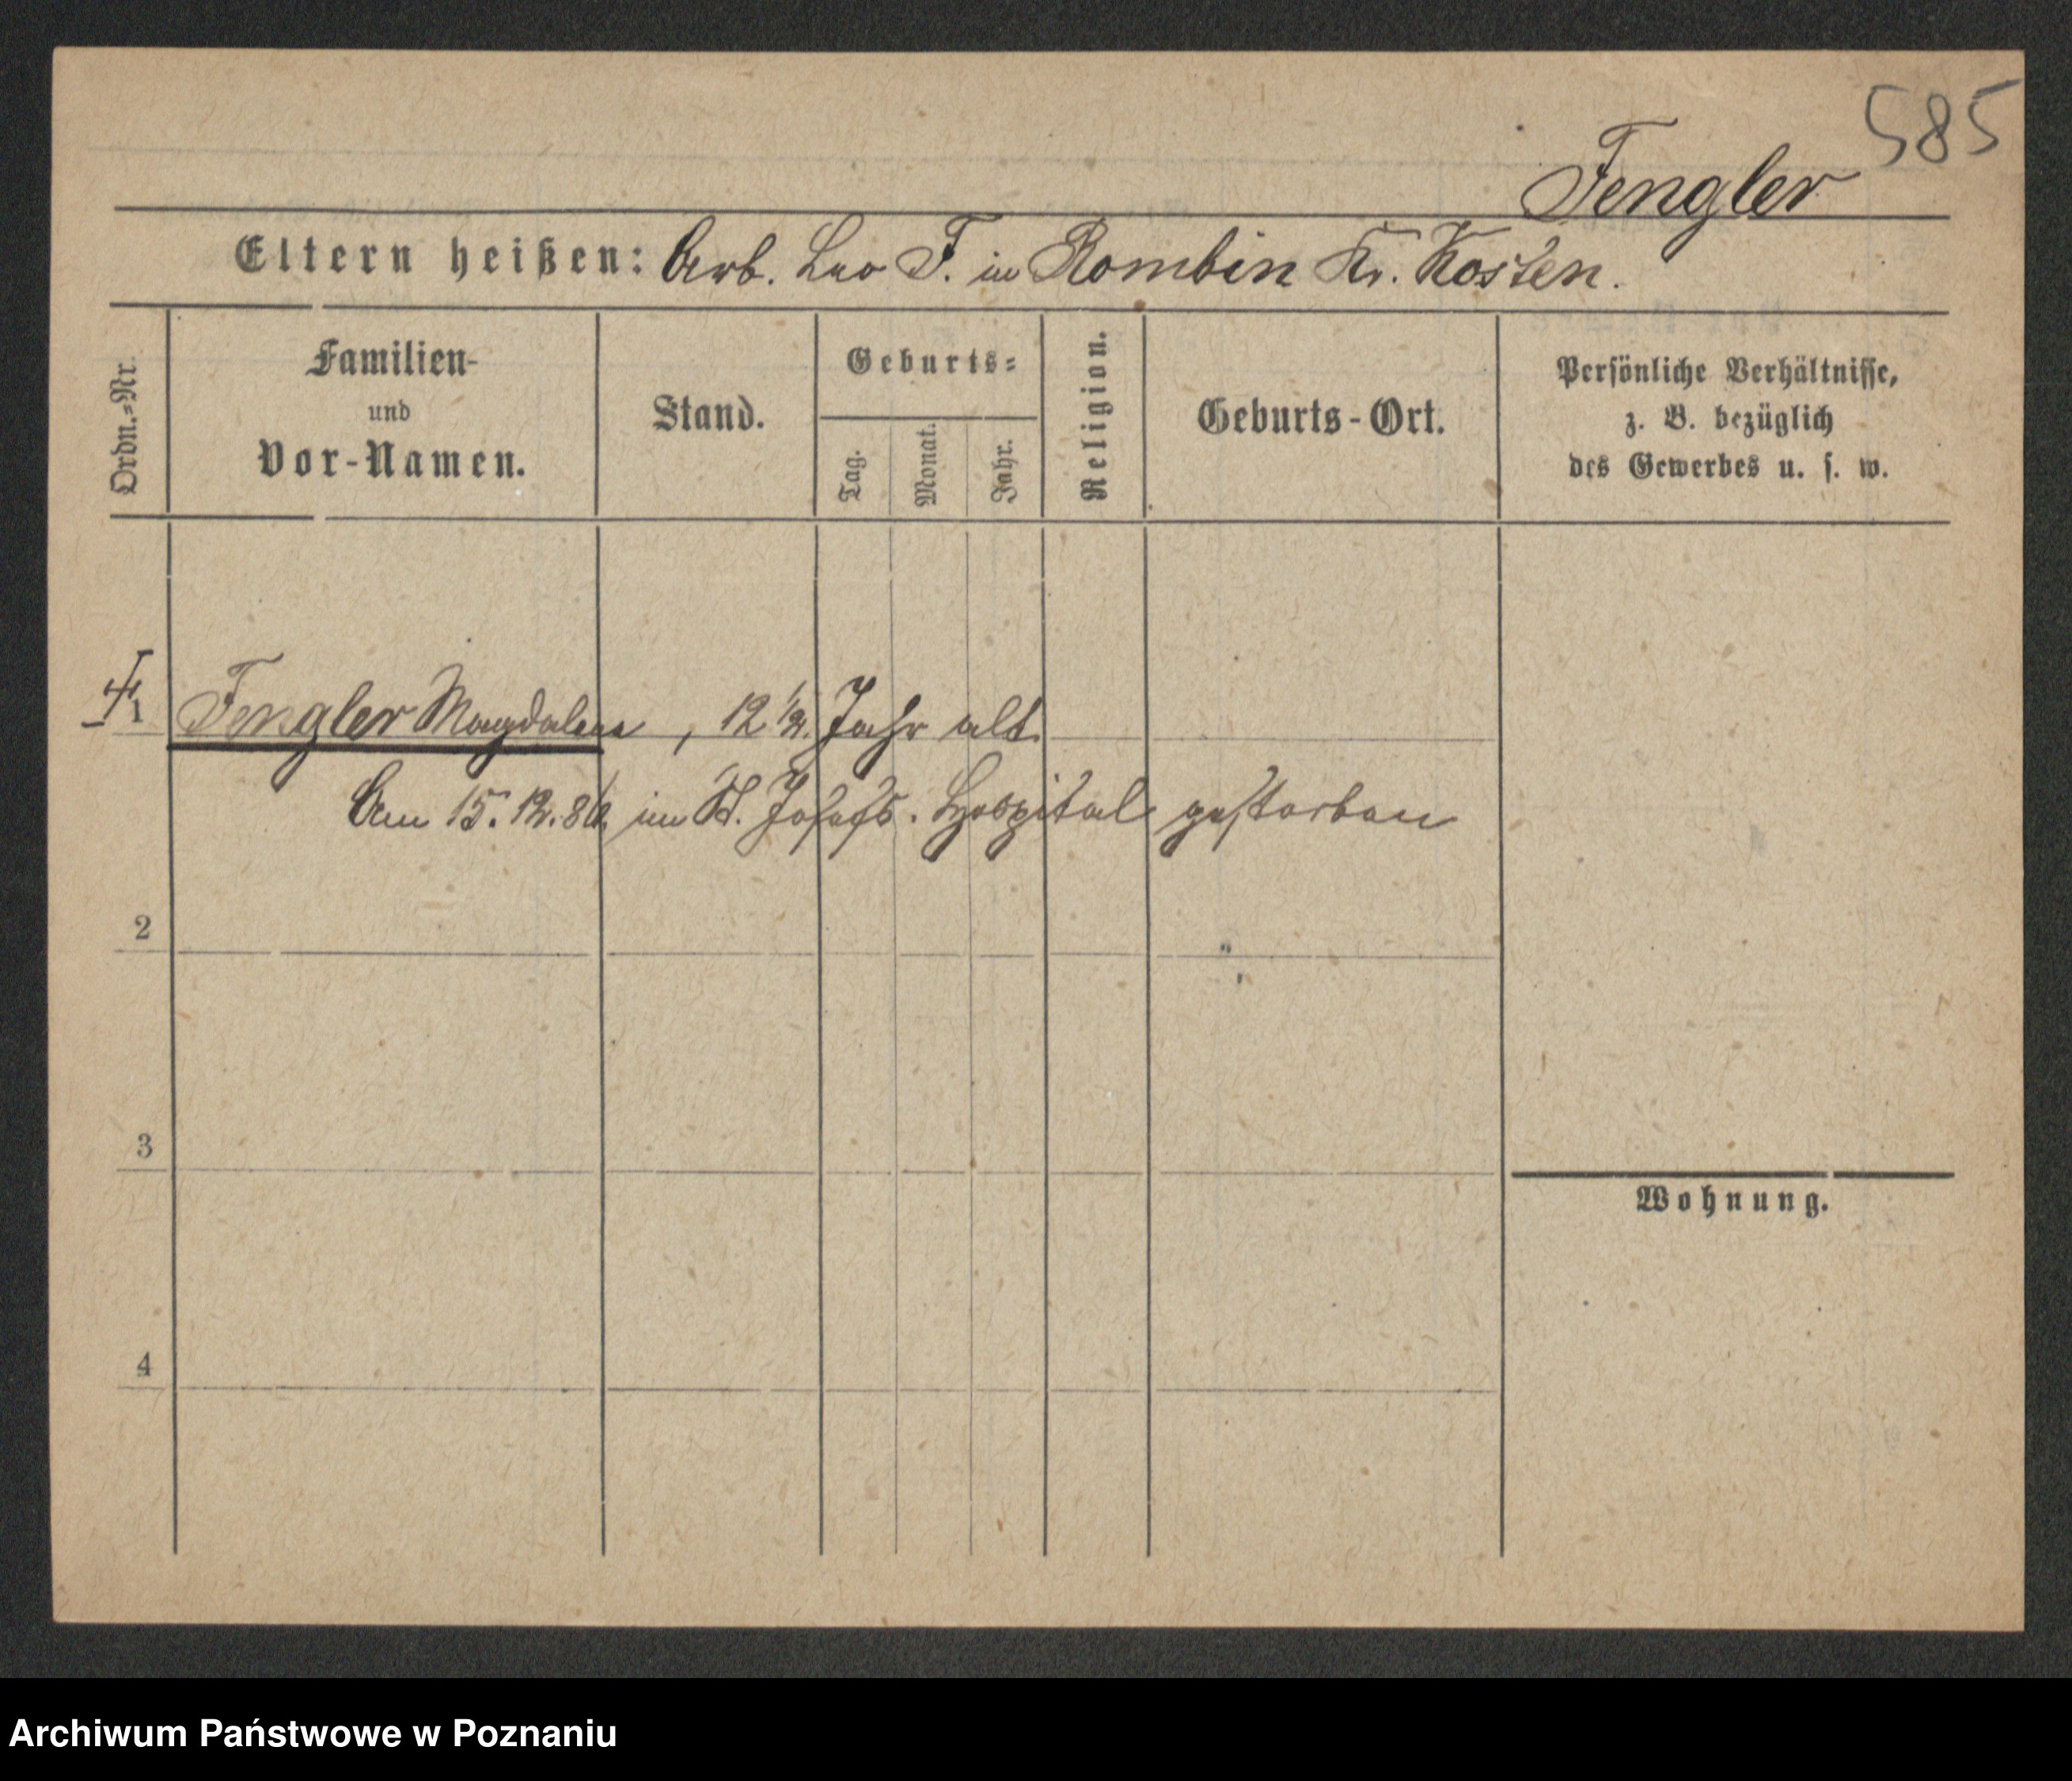 585
Fengler
Eltern heißen: Arb. Leo F. in Rombin Kr. Kosten.
Ordn.-Nr.
Familien-
und
Vor-Namen.
Stand.
Geburts-
Tag.
Monat.
Jahr.
Religion.
Geburts-Ort.
Persönliche Verhältnisse,
z. B. bezüglich
des Gewerbes u. s. w.
1 Fengler Magdalena, 12 1/2 Jahr alt.
Am 15. 12. im St. Josefs. Hospital gestorben
2
3
Wohnung.
4
Archiwum Państwowe w Poznaniu